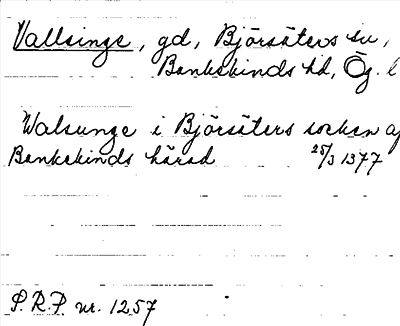 Vallsinge, gd, Björsäters sn,
Bankekinds hd, Ög. l
Walsunge i Björsäters socken af
Bankekinds härad 25/3 1377
P.R.P. nr. 1257